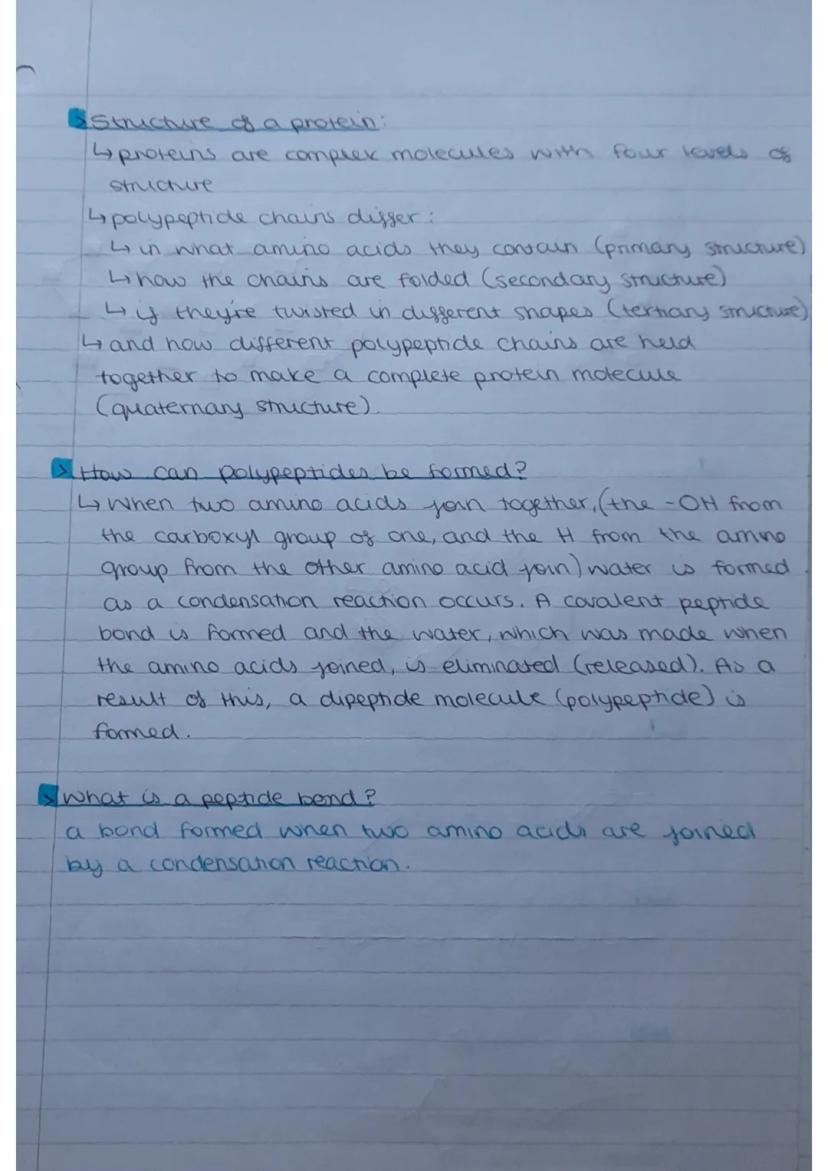 Structure of a protein:
↳ proteins are complex molecules with four levels of
structure
↳ polypeptide chains differ:
↳ in what amino acids they contain (primary structure)
↳ how the chains are folded (secondary structure)
↳ if they're twisted in different shapes (tertiary structure)
↳ and how different polypeptide chains are held
together to make a complete protein molecule
(quaternary structure).
How can polypeptides be formed?
↳ When two amino acids join together, (the -OH from
the carboxyl group of one, and the H from the amino
group from the other amino acid join) water is formed
as a condensation reaction occurs. A covalent peptide
bond is formed and the water, which was made when
the amino acids joined, is eliminated (released). As a
result of this, a dipeptide molecule (polypeptide) is
formed.
What is a peptide bond?
a bond formed when two amino acids are joined
by a condensation reaction.